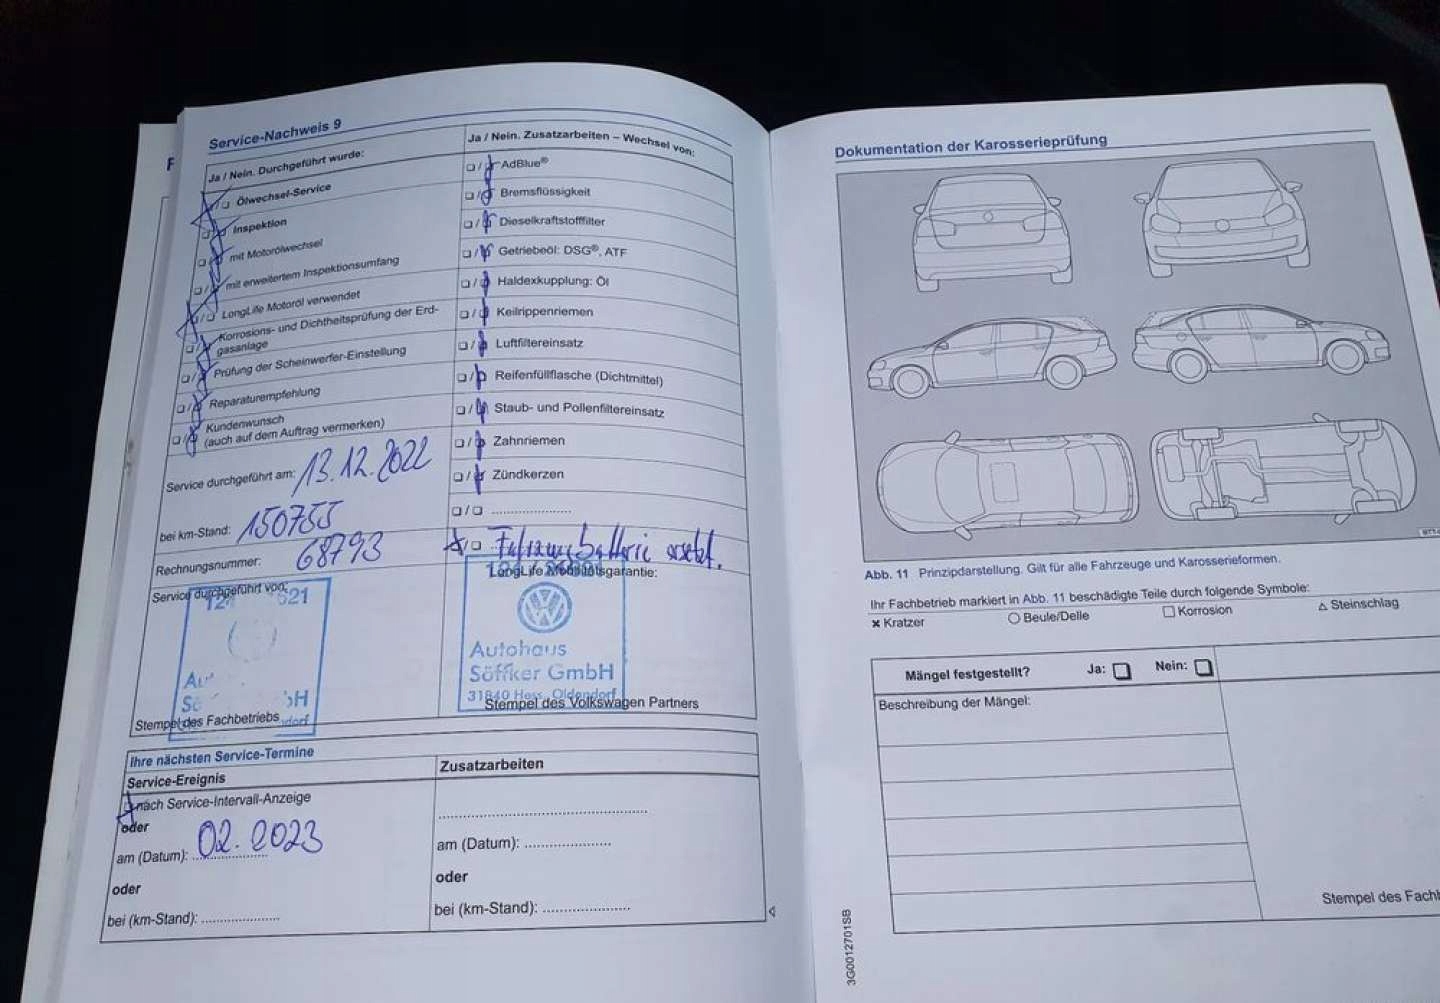 Service-Nachweis 9
Ja / Nein. Durchgeführt wurde:
Ölwechsel-Service
Inspektion
mit Motorölwechsel
mit erweitertem Inspektionsumfang
LongLife Motoröl verwendet
Korrosions- und Dichtheitsprüfung der Erd-
gasanlage
Prüfung der Scheinwerfer-Einstellung
Reparaturempfehlung
Kundenwunsch
(auch auf dem Auftrag vermerken)
Service durchgeführt am: 13.12.2022
bei km-Stand: 150755
Rechnungsnummer: 68793
Service durchgeführt von:
Stempel des Fachbetriebs
Ja / Nein. Zusatzarbeiten – Wechsel von:
AdBlue®
Bremsflüssigkeit
Dieselkraftstofffilter
Getriebeöl: DSG®, ATF
Haldexkupplung: Öl
Keilrippenriemen
Luftfiltereinsatz
Reifenfüllflasche (Dichtmittel)
Staub- und Pollenfiltereinsatz
Zahnriemen
Zündkerzen
Fahrzeugbatterie ersetzt.
LongLife Mobilitätsgarantie:
Autohaus
Söffker GmbH
31840 Hess. Oldendorf
Stempel des Volkswagen Partners
Ihre nächsten Service-Termine
Service-Ereignis
nach Service-Intervall-Anzeige
oder
am (Datum): 02.2023
oder
bei (km-Stand):
Zusatzarbeiten
am (Datum):
oder
bei (km-Stand):
Dokumentation der Karosserieprüfung
Abb. 11 Prinzipdarstellung. Gilt für alle Fahrzeuge und Karosserieformen.
Ihr Fachbetrieb markiert in Abb. 11 beschädigte Teile durch folgende Symbole:
Kratzer
Beule/Delle
Korrosion
Steinschlag
Mängel festgestellt? Ja: Nein:
Beschreibung der Mängel:
Stempel des Fach
3G0012701SB